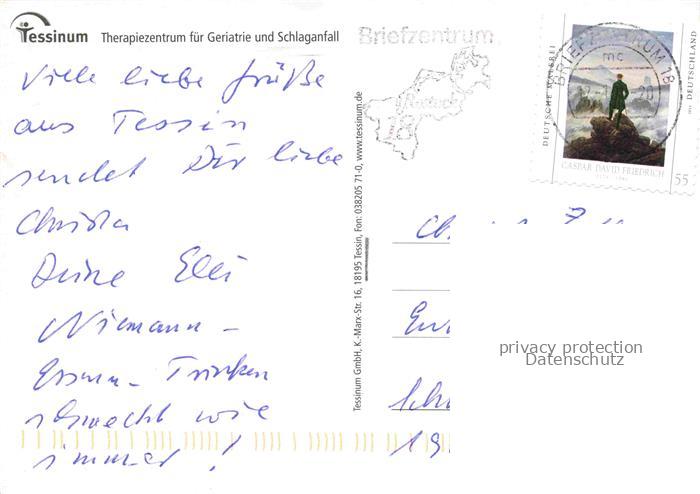 Tessinum Therapiezentrum für Geriatrie und Schlaganfall
Viele liebe Grüße
aus Tessin
sendet Dir liebe
Christa
Deine Elli
Niemann –
Essen – Trinken
schmeckt wie
immer!
Tessinum GmbH, K.-Marx-Str. 16, 18195 Tessin, Fon: 038205 71-0, www.tessinum.de
Briefzentrum
Rostock
18
BRIEFZENTRUM 18
mc
DEUTSCHE MALEREI
DEUTSCHLAND
CASPAR DAVID FRIEDRICH
55
privacy protection
Datenschutz